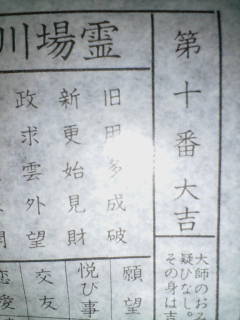 第十番大吉
大師のおみ
疑ひなし。
その身は吉
霊場川
旧用多成破
新更始見財
改求雲外望
願望
悦び事
交友
恋愛